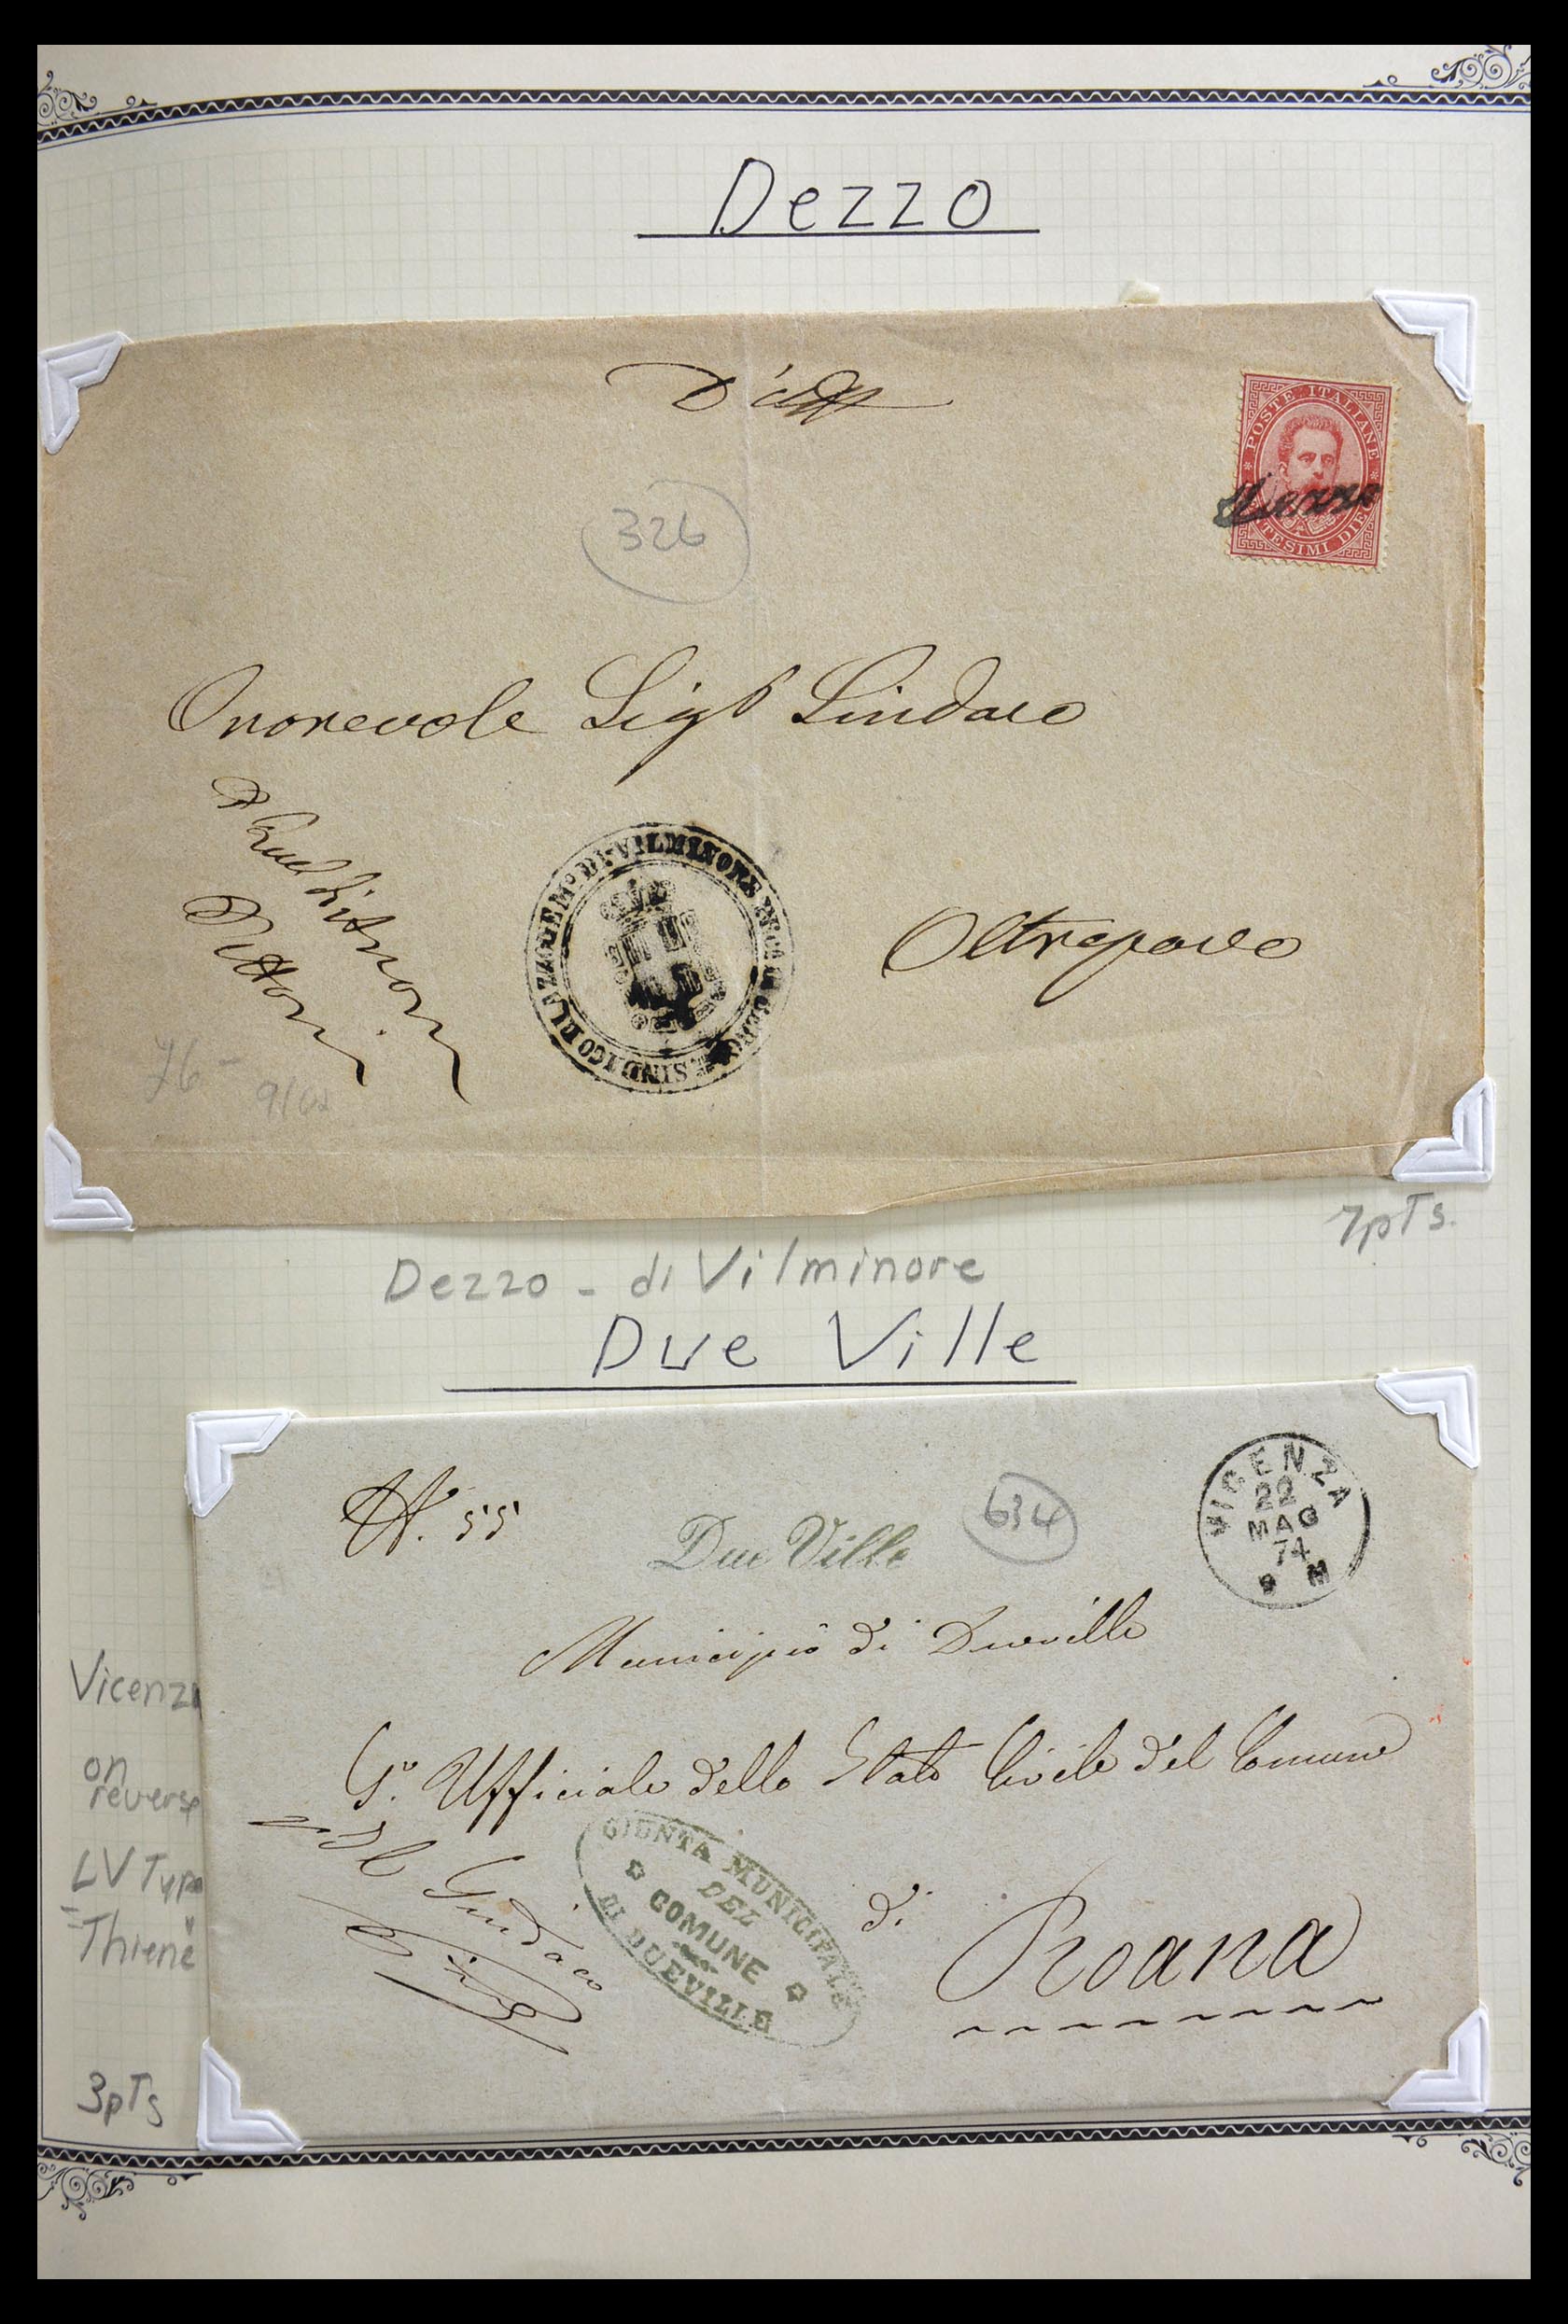 Dezzo
POSTE ITALIANE
Dezzo
326
Onorevole Sigr Sindaco
Oltrepovo
SINDACO DI AZZONE M. DI VILMINORE
76-
9/02
7pTs.
Dezzo - di Vilminore
Due Ville
N. 55
Due Ville
634
VICENZA
22
MAG
74
9 M
Municipio di Dueville
Ufficiale dello Stato Civile del Comune
di
Roana
Il Sindaco
GIUNTA MUNICIPALE
DEL
COMUNE
DI DUEVILLE
Vicenza
on
reverse
LV Type
=
Thiene
3pTs